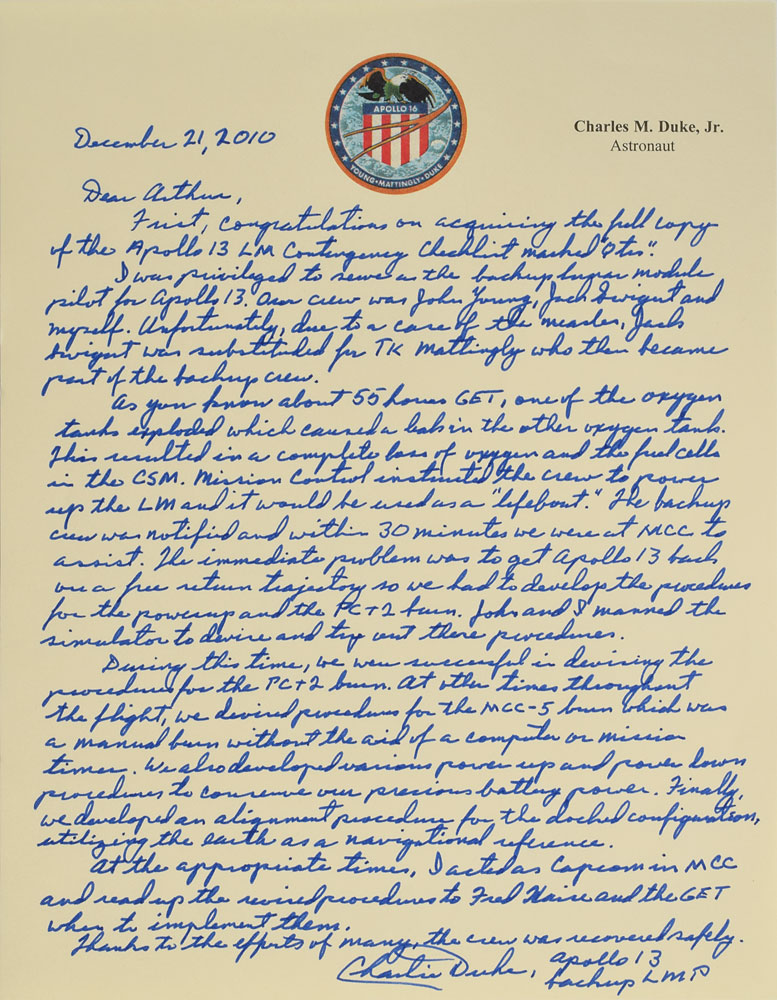 APOLLO 16
YOUNG • MATTINGLY • DUKE
Charles M. Duke, Jr.
Astronaut
December 21, 2010
Dear Arthur,
First, congratulations on acquiring the full copy
of the Apollo 13 LM Contingency Checklist marked "Otis".
I was privileged to serve as the backup lunar module
pilot for Apollo 13. Our crew was John Young, Jack Swigert and
myself. Unfortunately, due to a case of the measles, Jack
Swigert was substituted for TK Mattingly who then became
part of the backup crew.
As you know about 55 hours GET, one of the oxygen
tanks exploded which caused a leak in the other oxygen tank.
This resulted in a complete loss of oxygen and the fuel cells
in the CSM. Mission Control instructed the crew to power
up the LM and it would be used as a "lifeboat." The backup
crew was notified and within 30 minutes we were at MCC to
assist. The immediate problem was to get Apollo 13 back
on a free return trajectory so we had to develop the procedures
for the powerup and the PC+2 burn. John and I manned the
simulator to devise and try out these procedures.
During this time, we were successful in devising the
procedures for the PC+2 burn. At other times throughout
the flight, we devised procedures for the MCC-5 burn which was
a manual burn without the aid of a computer or mission
timer. We also developed various power up and power down
procedures to conserve our precious battery power. Finally,
we developed an alignment procedure for the docked configuration,
utilizing the earth as a navigational reference.
At the appropriate times, I acted as Capcom in MCC
and read up the revised procedures to Fred Haise and the GET
when to implement them.
Thanks to the efforts of many, the crew was recovered safely.
Charlie Duke, Apollo 13
backup LMP